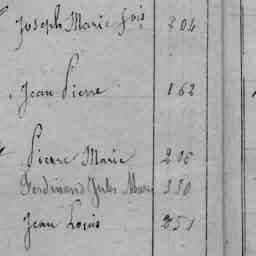 Joseph Marie fois 204
Jean Pierre 162
Pierre Marie 206
Ferdinand Jules Marie 350
Jean Louis 251